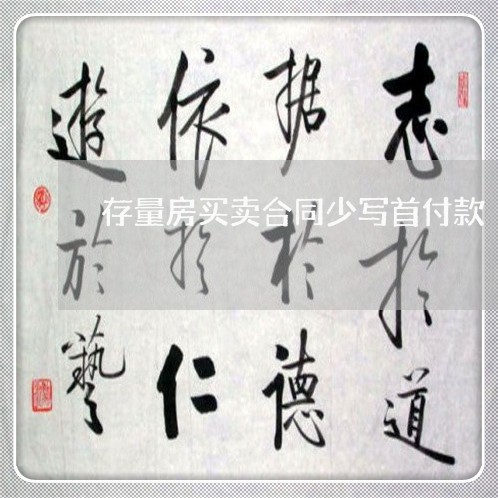 志於道
据於德
依於仁
遊於藝
存量房买卖合同少写首付款